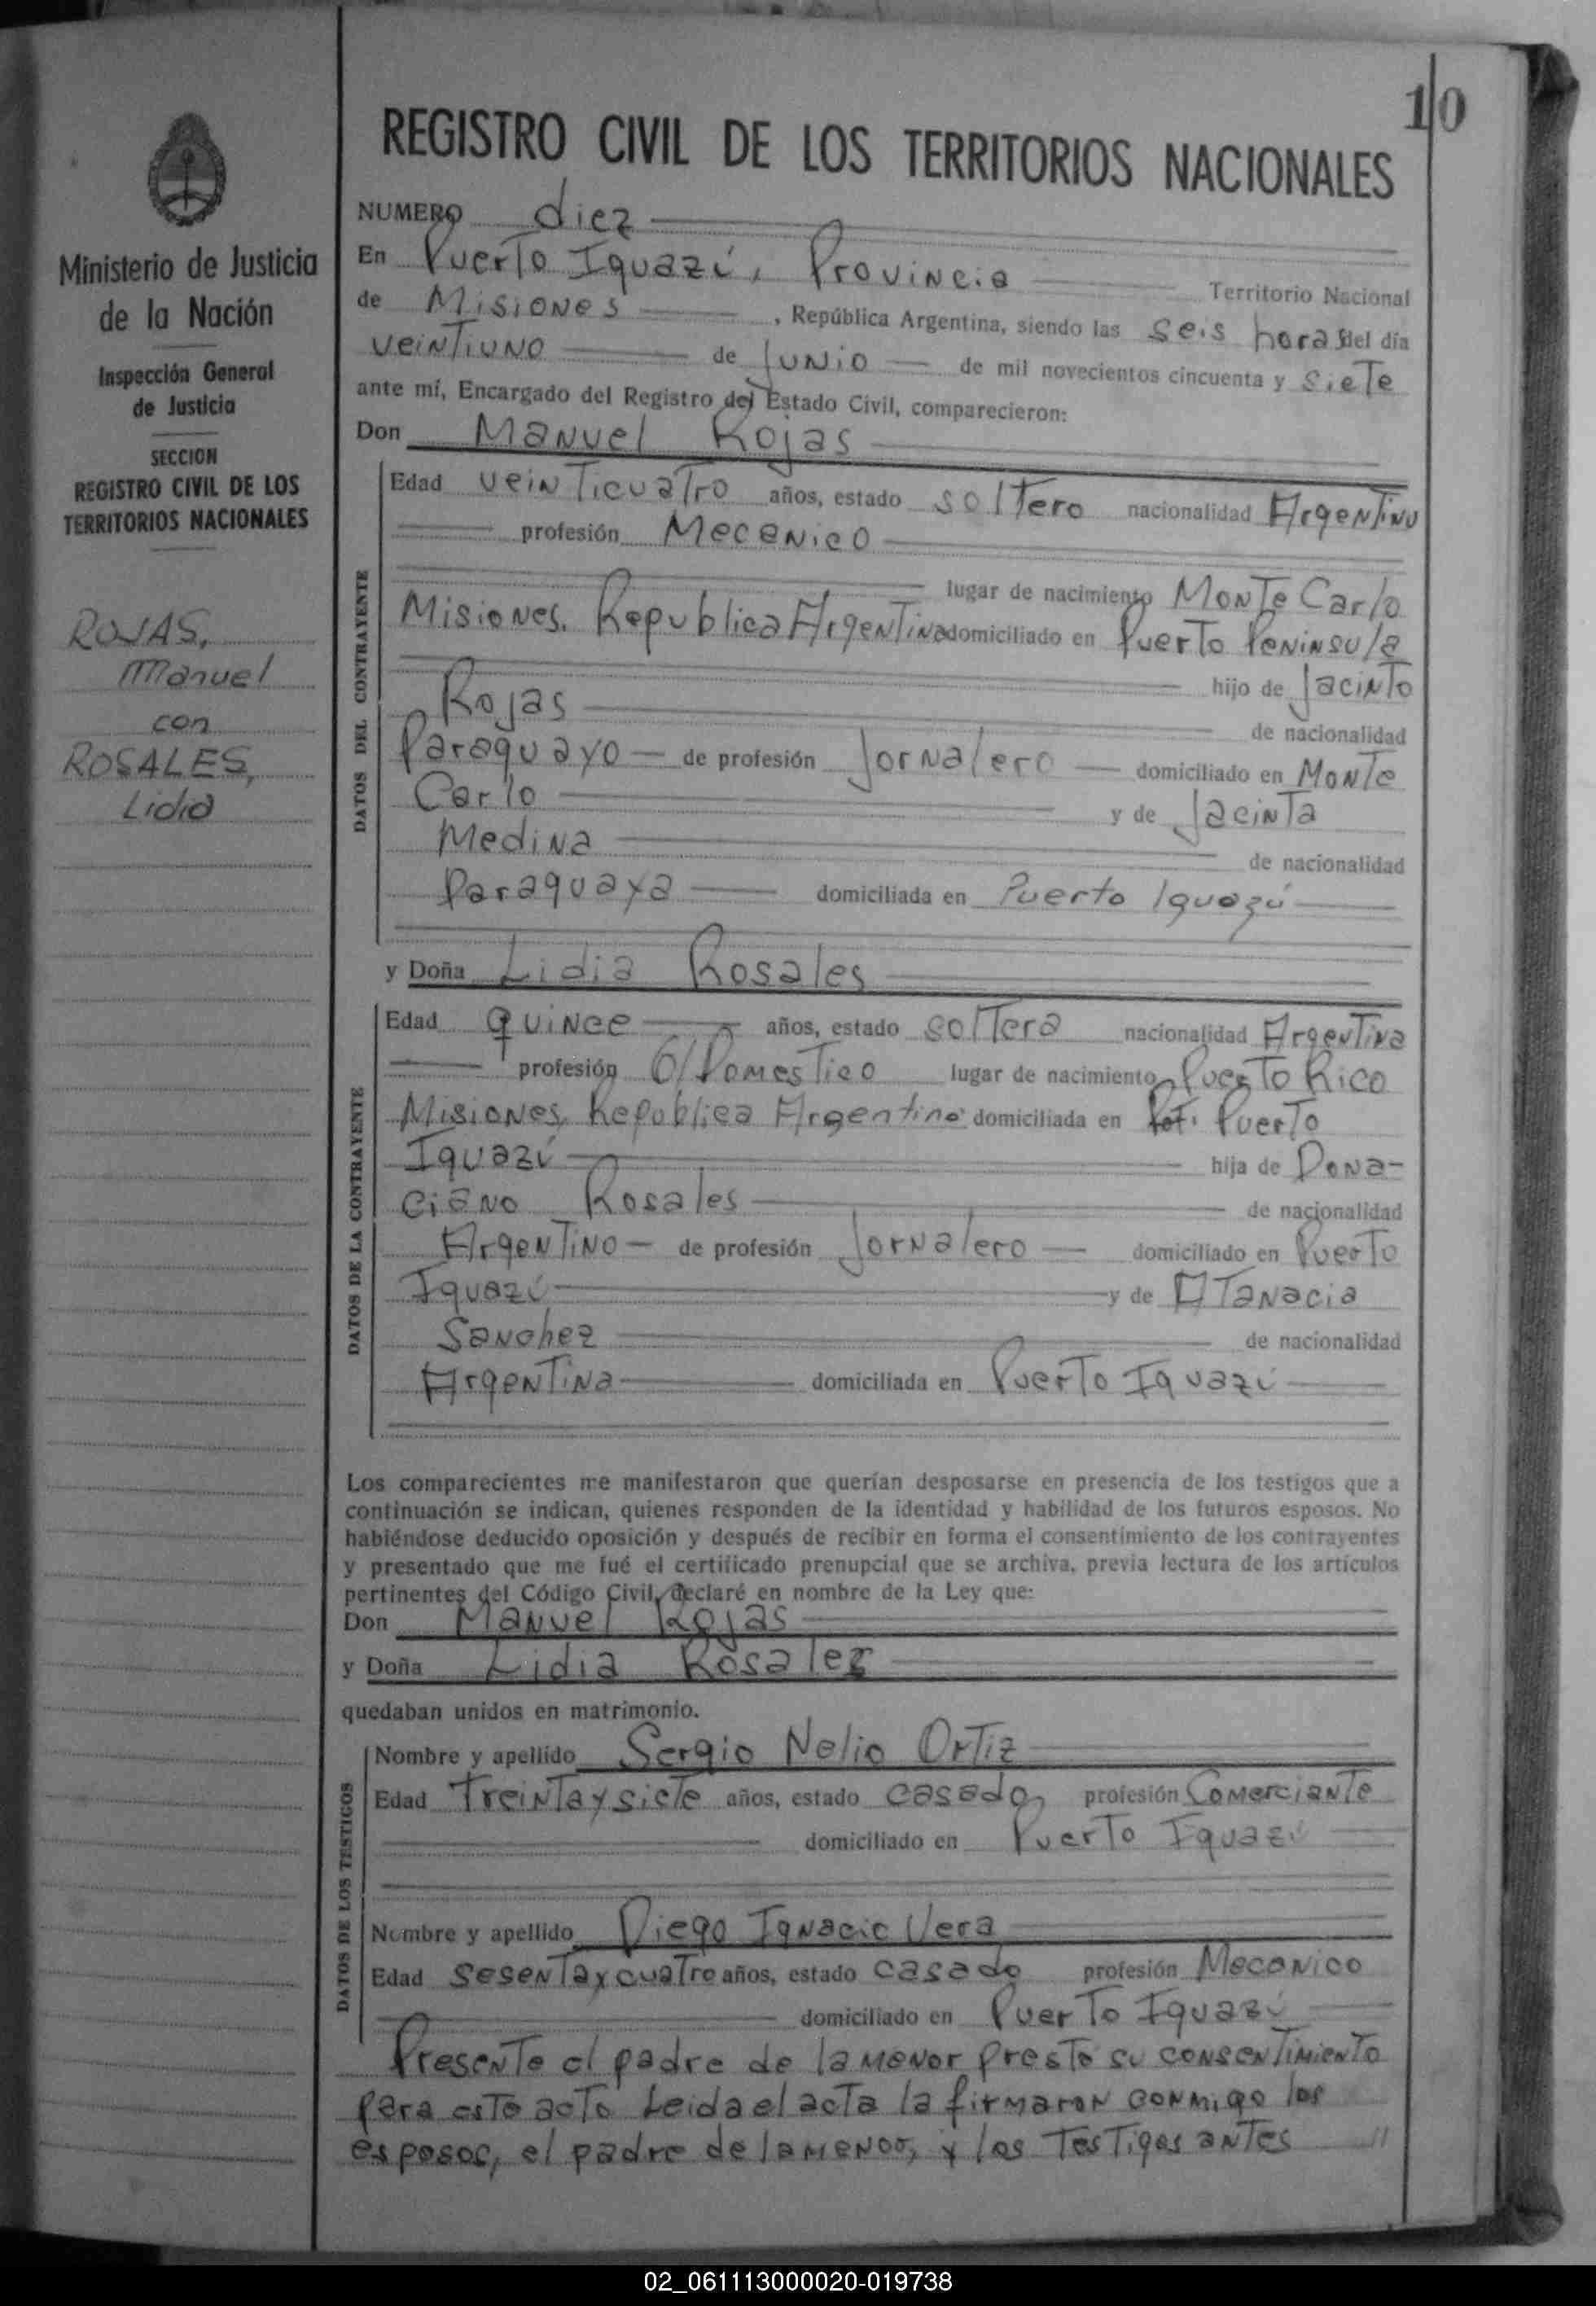 10
REGISTRO CIVIL DE LOS TERRITORIOS NACIONALES
Ministerio de Justicia
de la Nación
Inspección General
de Justicia
SECCION
REGISTRO CIVIL DE LOS
TERRITORIOS NACIONALES
ROJAS,
Manuel
con
ROSALES,
Lidia
NUMERO diez
En Puerto Iguazú, Provincia Territorio Nacional
de Misiones, República Argentina, siendo las seis horas del día
veintiuno de junio de mil novecientos cincuenta y siete
ante mí, Encargado del Registro del Estado Civil, comparecieron:
Don Manuel Rojas
DATOS DEL CONTRAYENTE
Edad veinticuatro años, estado soltero nacionalidad Argentino
profesión Mecenico
lugar de nacimiento Monte Carlo
Misiones, Republica Argentina domiciliado en Puerto Peninsula
hijo de Jacinto
Rojas
de nacionalidad
Paraguayo de profesión Jornalero domiciliado en Monte
Carlo y de Jacinta
Medina
de nacionalidad
Paraguaya domiciliada en Puerto Iguazú
y Doña Lidia Rosales
DATOS DE LA CONTRAYENTE
Edad quince años, estado soltera nacionalidad Argentina
profesión Q/Domestico lugar de nacimiento Puerto Rico
Misiones, Republica Argentina domiciliada en Puerto
Iguazú hija de Dona-
ciano Rosales de nacionalidad
Argentino de profesión Jornalero domiciliado en Puerto
Iguazú y de Atanacia
Sanchez de nacionalidad
Argentina domiciliada en Puerto Iguazú
Los comparecientes me manifestaron que querían desposarse en presencia de los testigos que a
continuación se indican, quienes responden de la identidad y habilidad de los futuros esposos. No
habiéndose deducido oposición y después de recibir en forma el consentimiento de los contrayentes
y presentado que me fué el certificado prenupcial que se archiva, previa lectura de los artículos
pertinentes del Código Civil, declaré en nombre de la Ley que:
Don Manuel Rojas
y Doña Lidia Rosales
quedaban unidos en matrimonio.
DATOS DE LOS TESTIGOS
Nombre y apellido Sergio Nelio Ortiz
Edad treinta y siete años, estado casado, profesión Comerciante
domiciliado en Puerto Iguazú
Nombre y apellido Diego Ignacio Vera
Edad sesenta y cuatro años, estado casado profesión Mecanico
domiciliado en Puerto Iguazú
Presente el padre de la menor presto su consentimiento
para este acto Leida el acta la firmaron conmigo los
esposos, el padre de la menor, y los testigos antes //
02_061113000020-019738